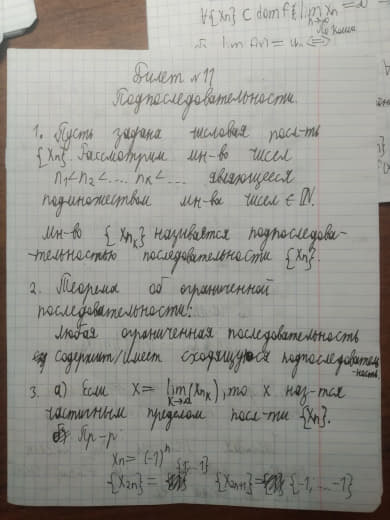 ∀{xn} ⊂ dom f {lim xn = ∞
n→∞
по Коши
lim
Билет №11
Подпоследовательности.
1. Пусть задана числовая посл-ть
{xn}. Рассмотрим мн-во чисел
n1<n2<... nk<... являющееся
подмножеством мн-ва чисел ∈ ℕ.
мн-во {xnk} называется подпоследова-
-тельностью последовательности {xn}.
2. Теорема об ограниченной
последовательности:
любая ограниченная последовательность
содержит/имеет сходящуюся подпоследователь
-ность
3. а) Если x = lim(xnk), то x наз-тся
k→∞
частичным пределом посл-ти {xn}.
Пр-р
xn = (-1)^n
{1...1}
{x2n} = {x2n+1} = {-1, ... -1}